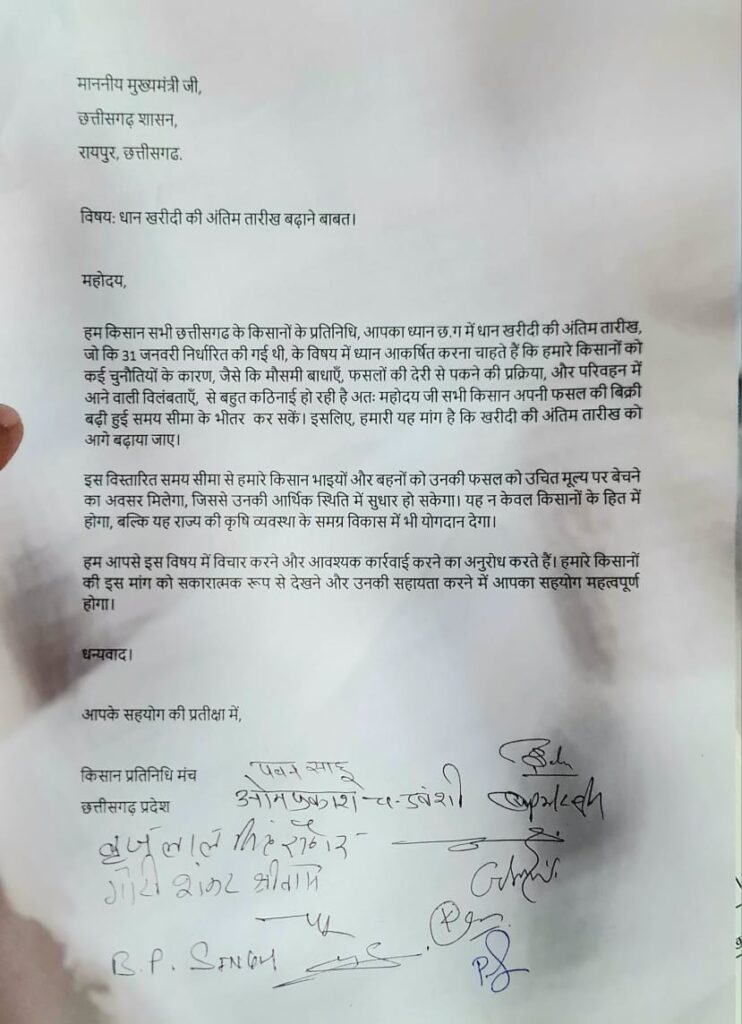 माननीय मुख्यमंत्री जी,
छत्तीसगढ़ शासन,
रायपुर, छत्तीसगढ.
विषय: धान खरीदी की अंतिम तारीख बढ़ाने बाबत।
महोदय,
हम किसान सभी छत्तीसगढ के किसानों के प्रतिनिधि, आपका ध्यान छ.ग में धान खरीदी की अंतिम तारीख,
जो कि 31 जनवरी निर्धारित की गई थी, के विषय में ध्यान आकर्षित करना चाहते हैं कि हमारे किसानों को
कई चुनौतियों के कारण, जैसे कि मौसमी बाधाएँ, फसलों की देरी से पकने की प्रक्रिया, और परिवहन में
आने वाली विलंबताएँ, से बहुत कठिनाई हो रही है अतः महोदय जी सभी किसान अपनी फसल की बिक्री
बढ़ी हुई समय सीमा के भीतर कर सकें। इसलिए, हमारी यह मांग है कि खरीदी की अंतिम तारीख को
आगे बढ़ाया जाए।
इस विस्तारित समय सीमा से हमारे किसान भाइयों और बहनों को उनकी फसल को उचित मूल्य पर बेचने
का अवसर मिलेगा, जिससे उनकी आर्थिक स्थिति में सुधार हो सकेगा। यह न केवल किसानों के हित में
होगा, बल्कि यह राज्य की कृषि व्यवस्था के समग्र विकास में भी योगदान देगा।
हम आपसे इस विषय में विचार करने और आवश्यक कार्रवाई करने का अनुरोध करते हैं। हमारे किसानों
की इस मांग को सकारात्मक रूप से देखने और उनकी सहायता करने में आपका सहयोग महत्वपूर्ण
होगा।
धन्यवाद।
आपके सहयोग की प्रतीक्षा में,
किसान प्रतिनिधि मंच पवन साहू
छत्तीसगढ़ प्रदेश ओमप्रकाश चन्द्रवंशी
B.P. SINGH